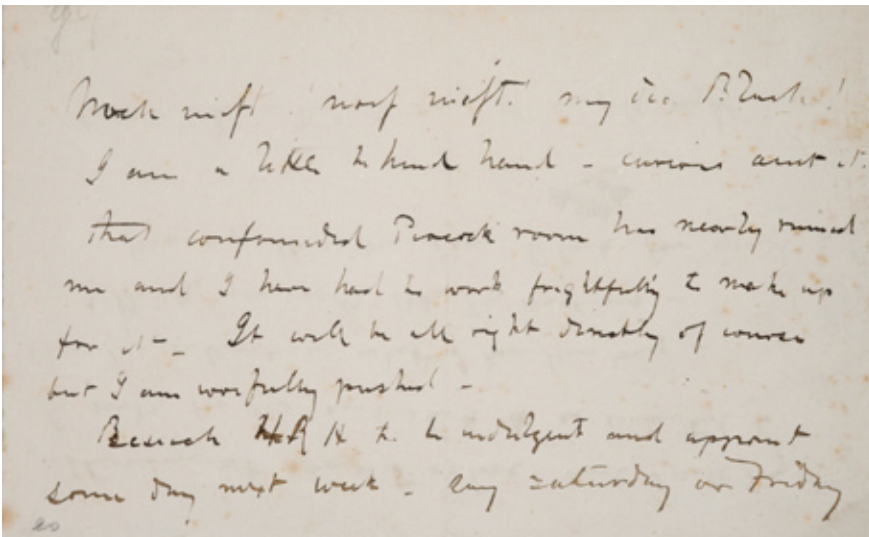 I am a little behind hand - curious aint it.
that confounded Peacock room has nearly ruined
me and I have had to work frightfully to make up
for it - It will be all right directly of course
but I am woefully pushed -
Beseech HRH to be indulgent and appoint
some day next week - say Saturday or Friday